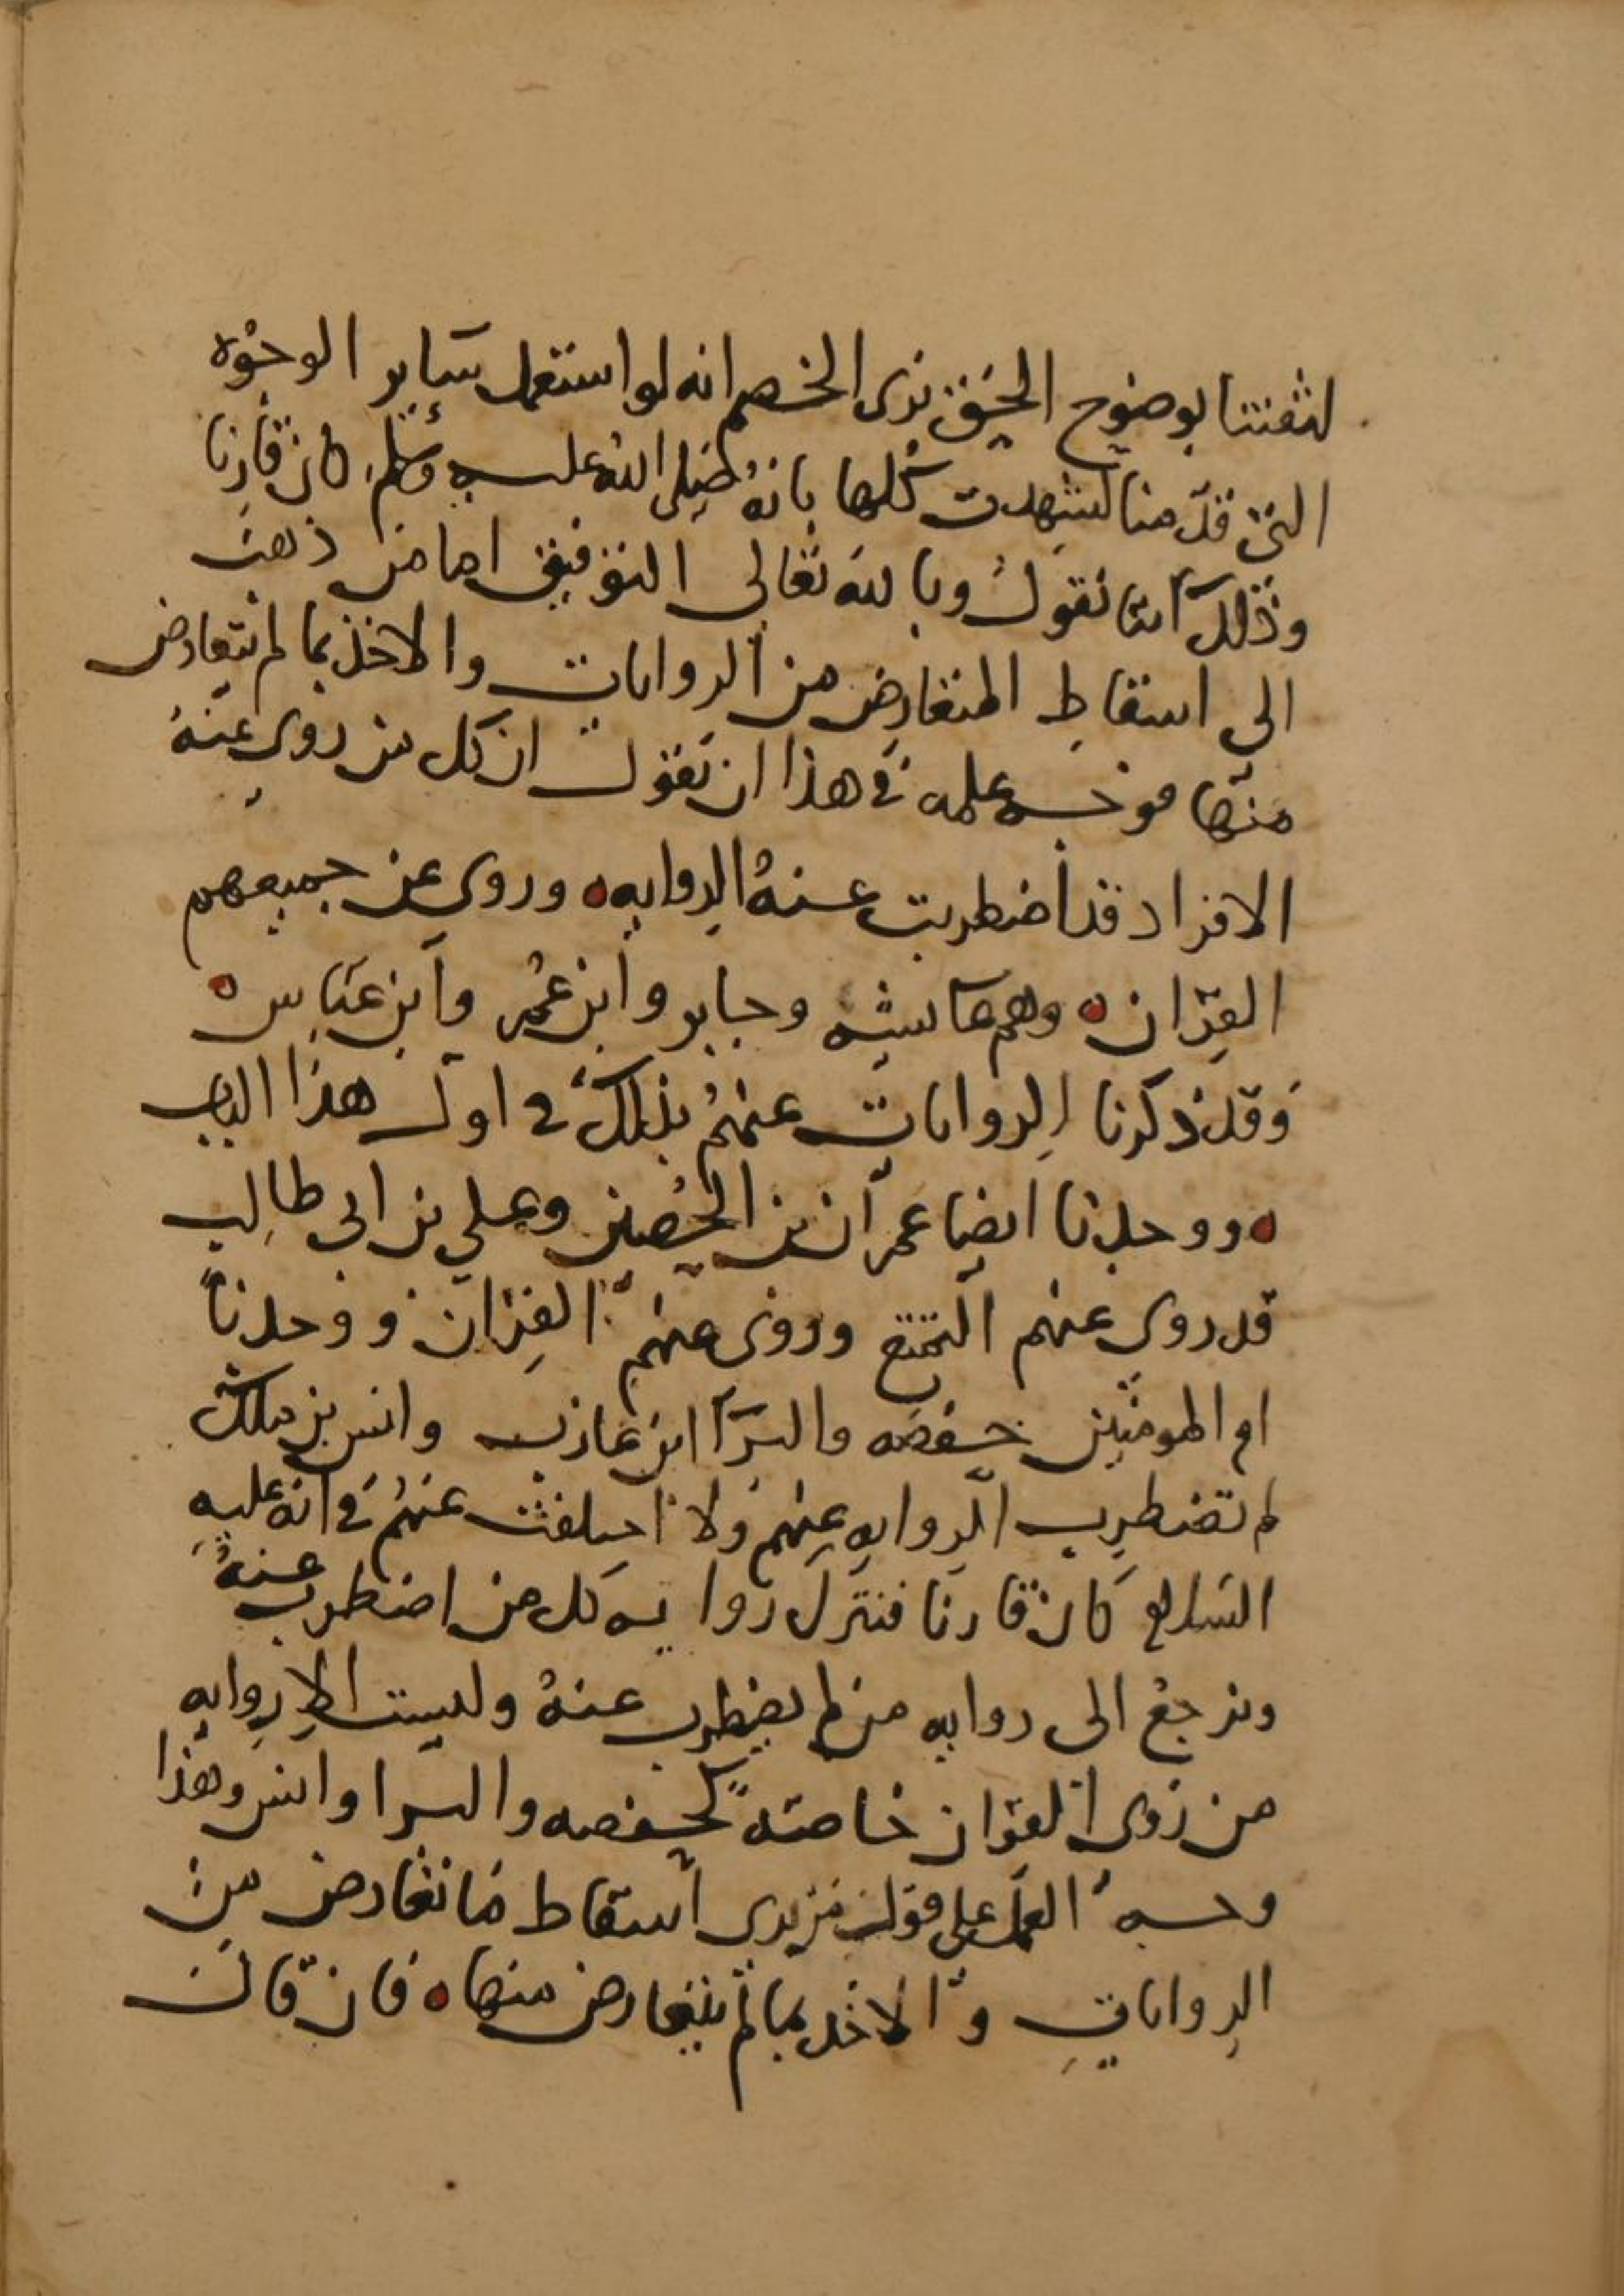 لثقتنا بوضوح الحق نرى الخصم انه لو استعمل ساير الوجوه
التي قدمنا لشهدت كلها بانه صلى الله عليه وسلم كان قارنا
وذلك اننا نقول وبالله تعالى التوفيق اما من ذهب
الى اسقاط المتعارض من الروايات والاخذ بما لم يتعارض
منها فوجه عمله في هذا ان نقول ان كل من روي عنه
الافراد قد اضطربت عنه الروايه ه وروي عن جميعهم
القران ه وهم عايشه وجابر وابن عمر وابن عباس ه
وقد ذكرنا الروايات عنهم بذلك في اول هذا الباب
ه ووجدنا ايضا عمران بن الحصين وعلي بن ابي طالب
قد روي عنهم التمتع وروي عنهم القران ووجدنا
ام المومنين حفصه والبرا ابن عازب وانس بن ملك
لم تضطرب الروايه عنهم ولا اختلفت عنهم في انه عليه
السلام كان قارنا فنترك روايه كل من اضطرب عنه
ونرجع الى روايه من لم يضطرب عنه وليست الا روايه
من روى القران خاصة كحفصه والبرا وانس وهذا
وجه العمل على قول من يرى اسقاط ما تعارض من
الروايات والاخذ بما لم يتعارض منها ه فان قال